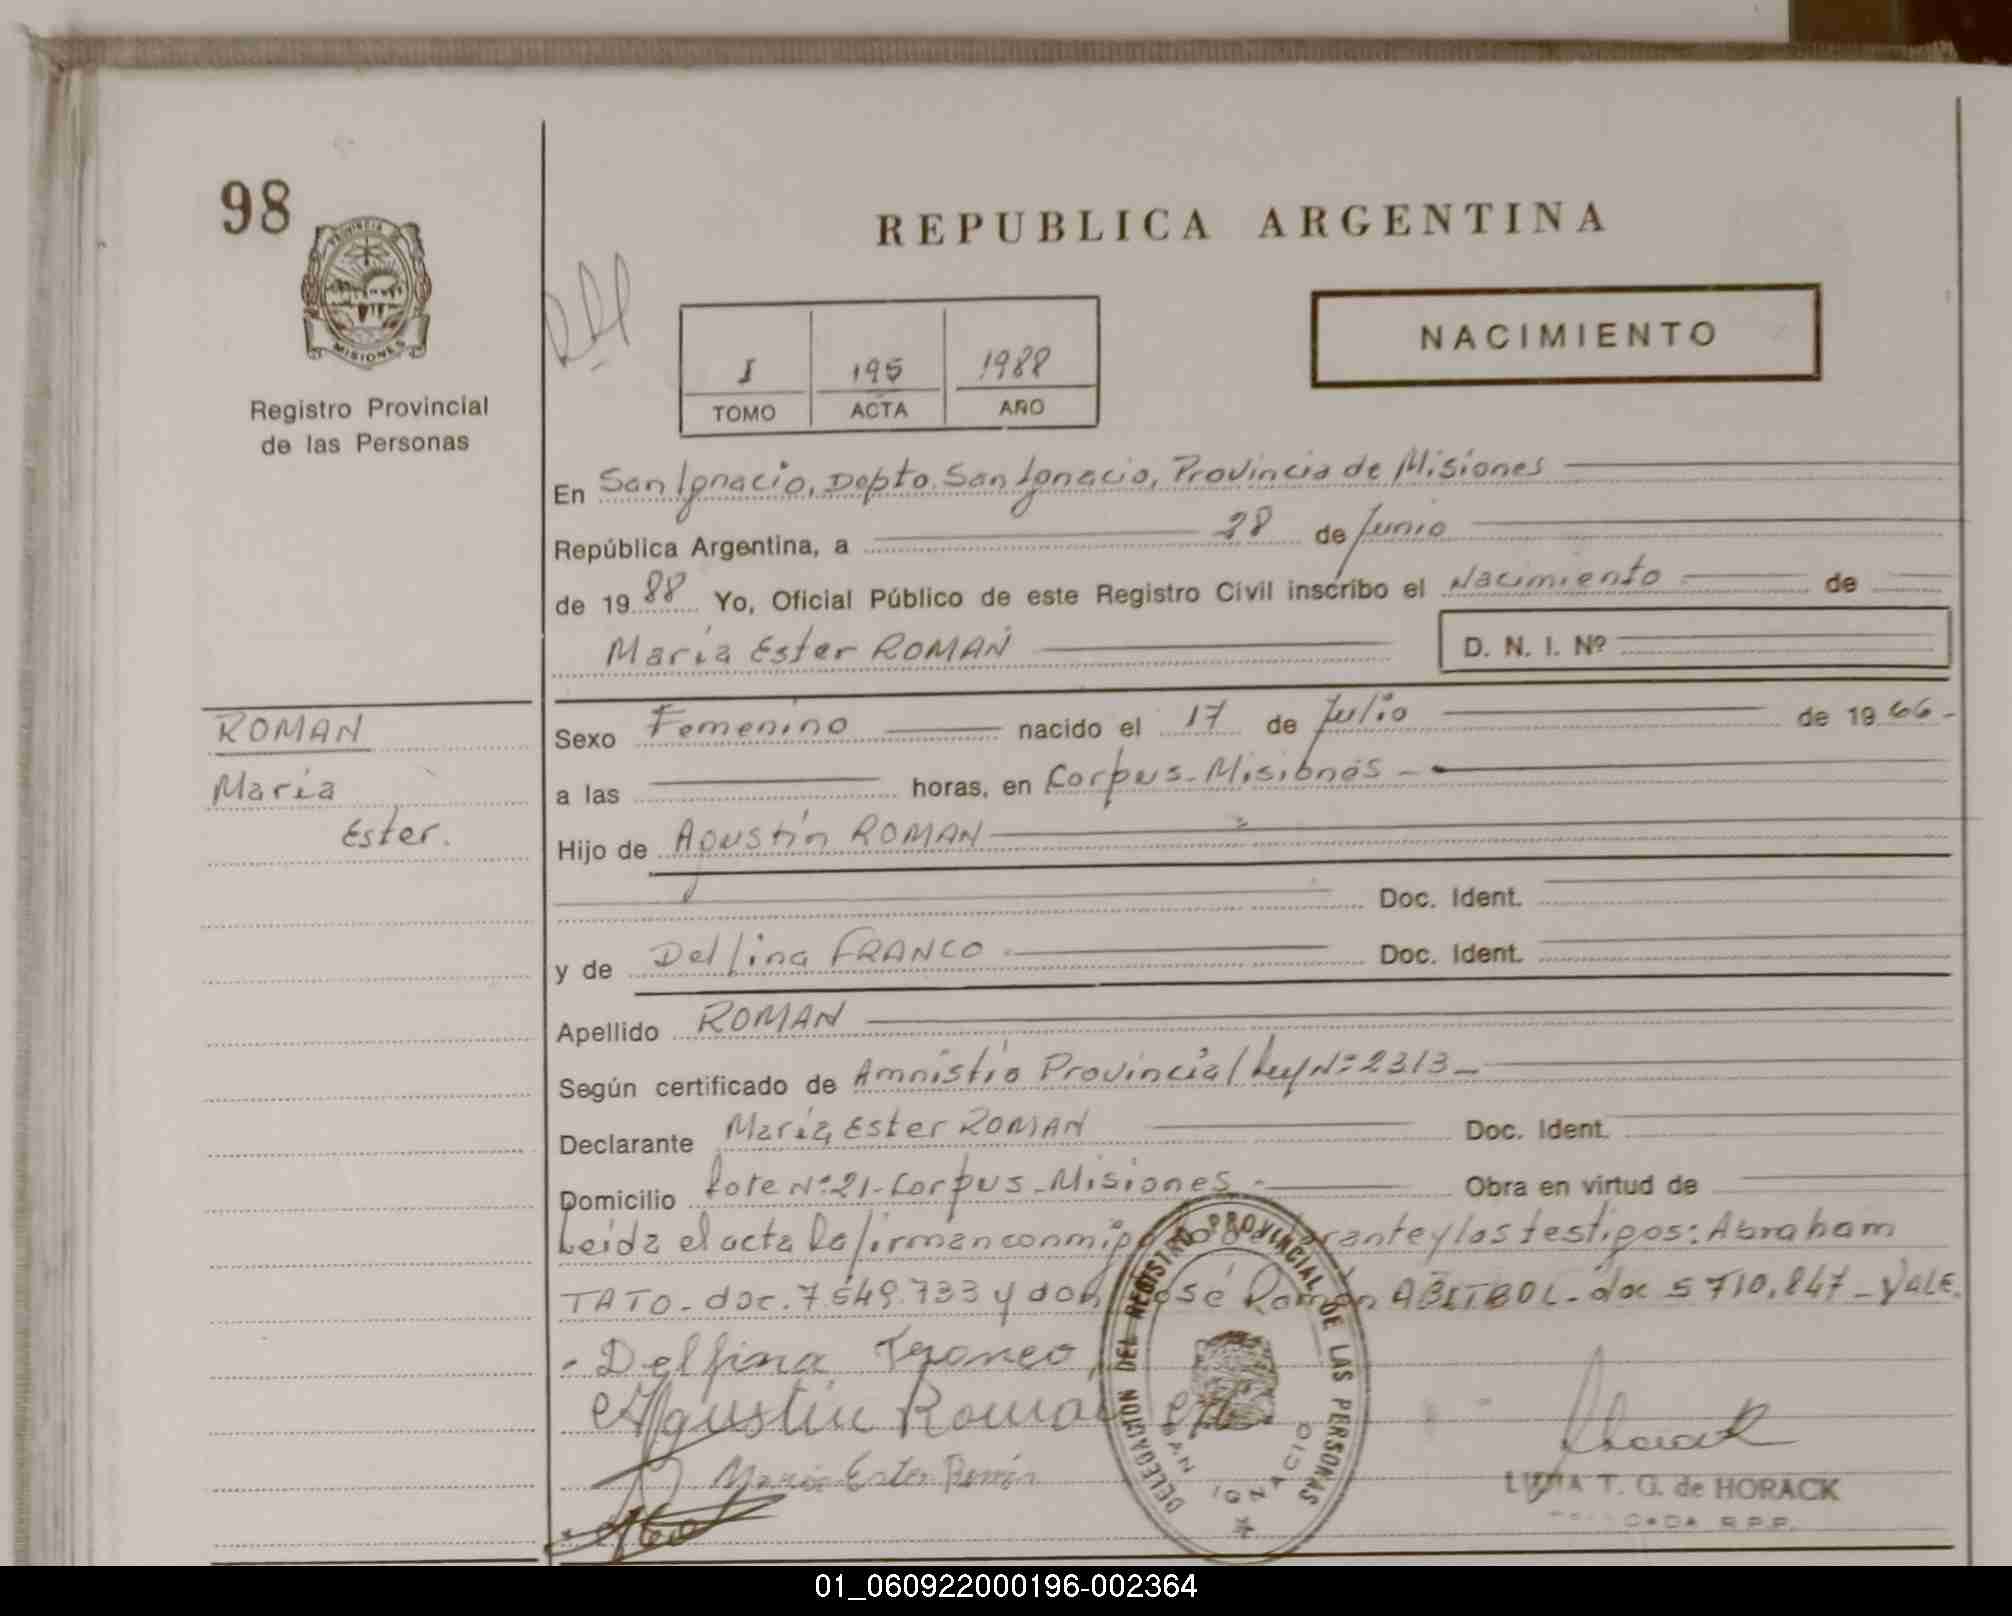 98
PROVINCIA
MISIONES
Registro Provincial
de las Personas
REPUBLICA ARGENTINA
NACIMIENTO
I 195 1988
TOMO ACTA AÑO
En San Ignacio, Dopto. San Ignacio, Provincia de Misiones
República Argentina, a 28 de Junio
de 19 88 Yo, Oficial Público de este Registro Civil inscribo el Nacimiento de
María Ester ROMAN D. N. I. Nº
ROMAN
María
Ester.
Sexo Femenino nacido el 17 de Julio de 19 66-
a las horas, en Corpus-Misiones-
Hijo de Agustín ROMAN
Doc. Ident.
y de Delfina FRANCO Doc. Ident.
Apellido ROMAN
Según certificado de Amnistia Provincial Ley Nº 2313-
Declarante María Ester ROMAN Doc. Ident.
Domicilio Lote Nº 21-Corpus-Misiones- Obra en virtud de
Leida el acta la firman conmigo y los testigos: Abraham
TATO-doc. 7.549.733 y don José Ramón ABITBOL-doc 5 710.847-Vale.
Delfina Franco
Agustin Roman
Maria Ester Román
DELEGACION DEL REGISTRO PROVINCIAL DE LAS PERSONAS
SAN IGNACIO
T. G. de HORACK
R.P.P.
01_060922000196-002364